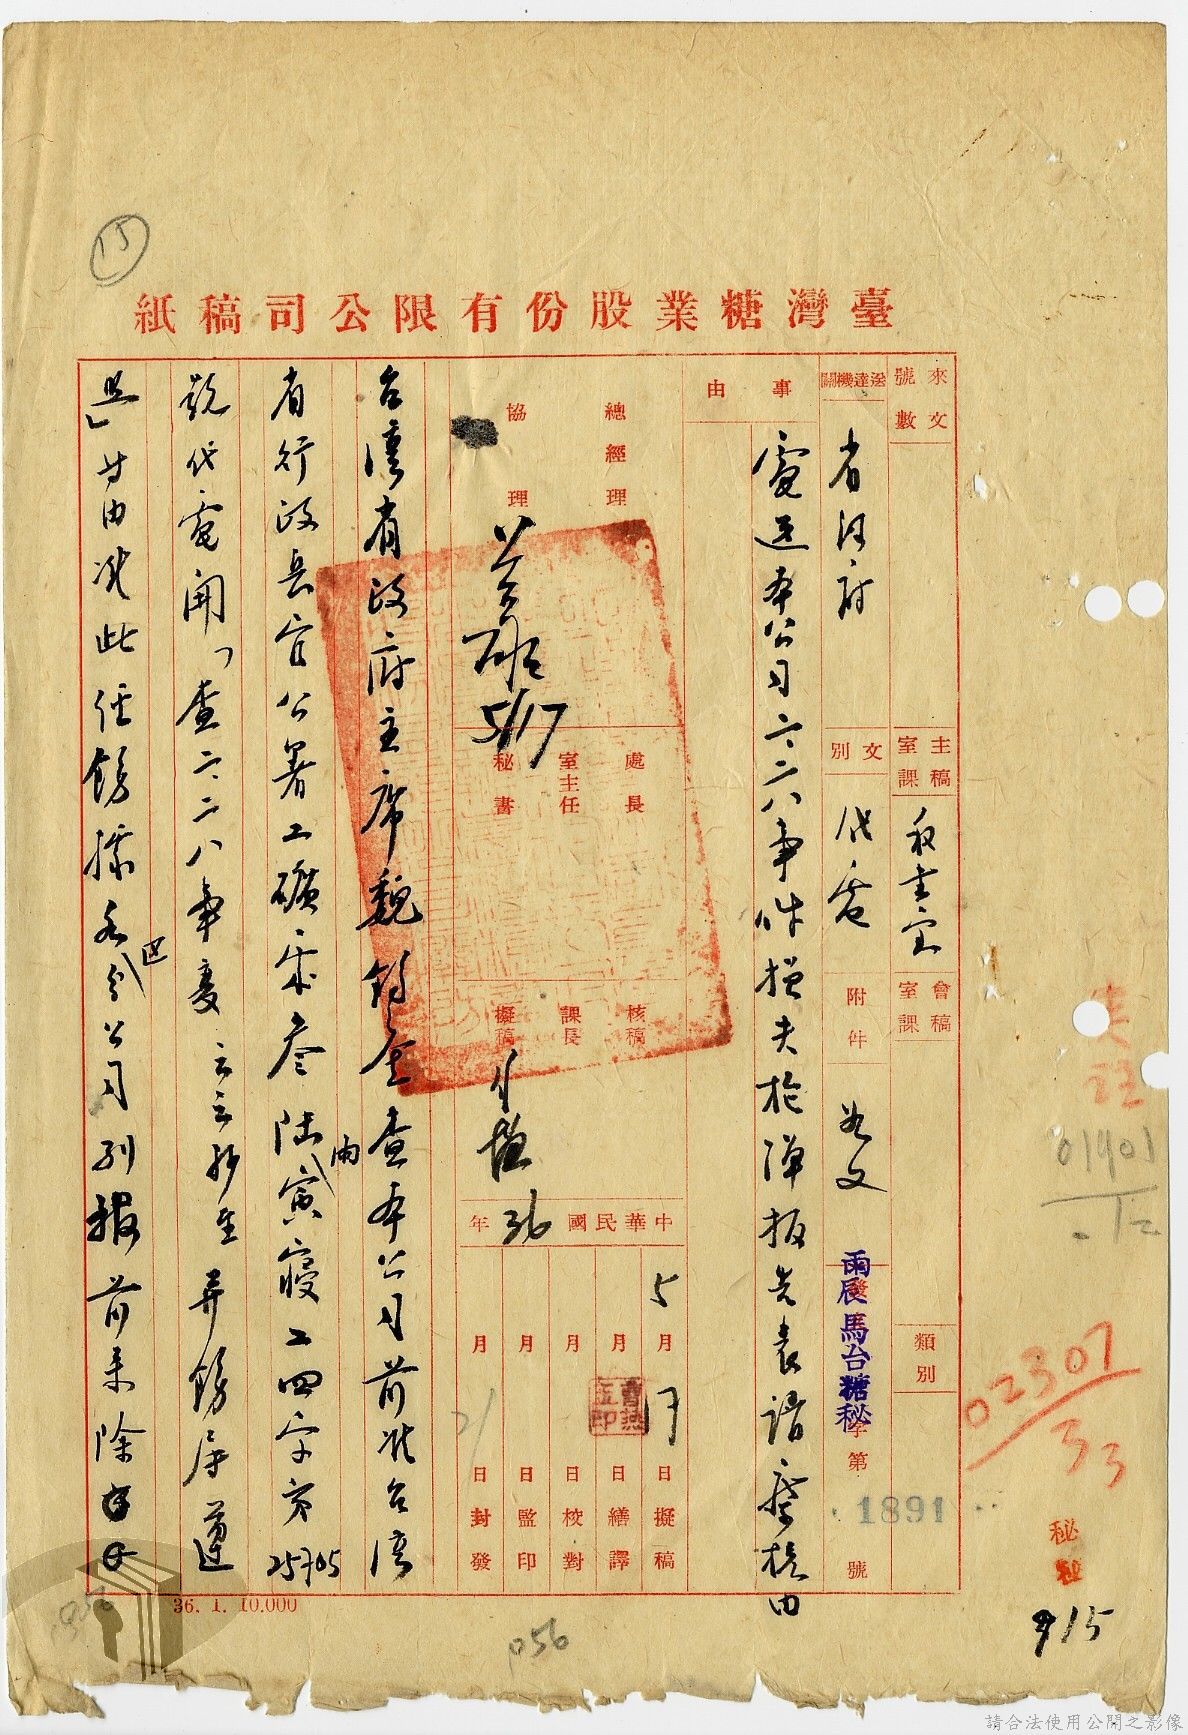 15
臺灣糖業股份有限公司稿紙
來文號數
送達機關
省政府
事由
電送本公司二二八事件損失於彈報告表請鑒核由
主稿室課
秘書室
文別
代電
會稿室課
附件
如文
類別
雨辰馬台糖秘
發
字第
1891
號
總經理
協理
5/17
處長
室主任
秘書
核稿
課長
擬稿
中華民國36年
5月17日擬稿
月日繕譯
月日校對
月日監印
21
月日封發
台灣省政府主席魏鈞鑒查本公司前准台灣
省行政長官公署工礦處叁陸寅寢工四字第25705
號代電開「查二二八事變云云抄至并飭屬遵
照」等由准此經飭據各區分公司列報前來除
36. 1. 10.000
056
01901
02301
33
秘
915
請合法使用公開之影像